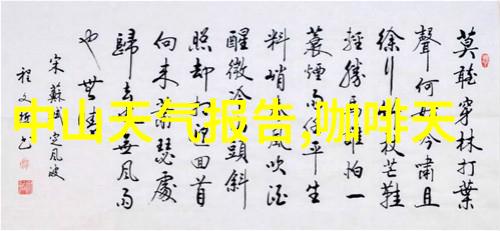 莫聽穿林打葉
聲何妨吟嘯且
徐行竹杖芒鞋
輕勝馬誰怕一
蓑煙雨任平生
料峭春風吹酒
醒微冷山頭斜
照却相迎回首
向来蕭瑟處
歸去也無風雨
也無晴
宋蘇軾定風波
程文
中山天气报告,咖啡天